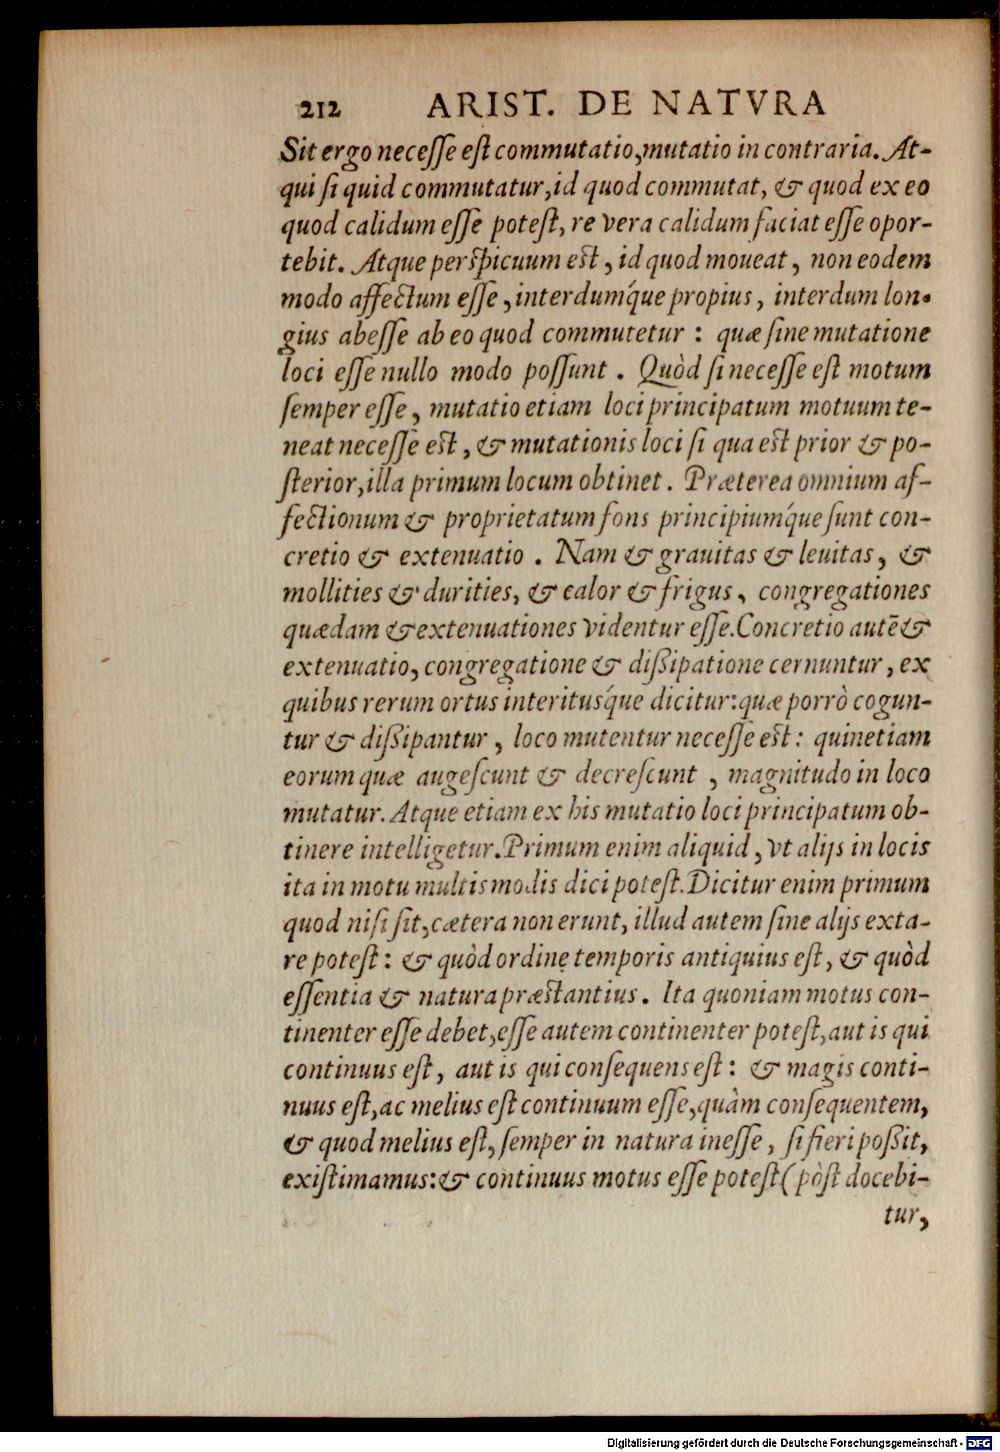 212 ARIST. DE NATVRA
Sit ergo necesse est commutatio, mutatio in contraria. At-
qui si quid commutatur, id quod commutat, & quod ex eo
quod calidum esse potest, re vera calidum faciat esse opor-
tebit. Atque perspicuum est, id quod moueat, non eodem
modo affectum esse, interdumq́ue propius, interdum lon-
gius abesse ab eo quod commutetur: quæ sine mutatione
loci esse nullo modo possunt. Quòd si necesse est motum
semper esse, mutatio etiam loci principatum motuum te-
neat necesse est, & mutationis loci si qua est prior & po-
sterior, illa primum locum obtinet. Præterea omnium af-
fectionum & proprietatum fons principiumq́ue sunt con-
cretio & extenuatio. Nam & grauitas & leuitas, &
mollities & durities, & calor & frigus, congregationes
quædam & extenuationes videntur esse. Concretio autē &
extenuatio, congregatione & dißipatione cernuntur, ex
quibus rerum ortus interitusq́ue dicitur: quæ porrò cogun-
tur & dißipantur, loco mutentur necesse est: quinetiam
eorum quæ augescunt & decrescunt, magnitudo in loco
mutatur. Atque etiam ex his mutatio loci principatum ob-
tinere intelligetur. Primum enim aliquid, vt alijs in locis
ita in motu multis modis dici potest. Dicitur enim primum
quod nisi sit, cætera non erunt, illud autem sine alijs exta-
re potest: & quòd ordine temporis antiquius est, & quòd
essentia & natura præstantius. Ita quoniam motus con-
tinenter esse debet, esse autem continenter potest, aut is qui
continuus est, aut is qui consequens est: & magis conti-
nuus est, ac melius est continuum esse, quàm consequentem,
& quod melius est, semper in natura inesse, si fieri poßit,
existimamus: & continuus motus esse potest (pòst docebi-
tur,
Digitalisierung gefördert durch die Deutsche Forschungsgemeinschaft - DFG